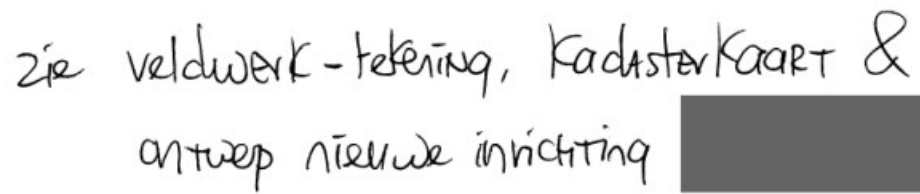 zie veldwerk-tekening, kadasterkaart &
ontwerp nieuwe inrichting